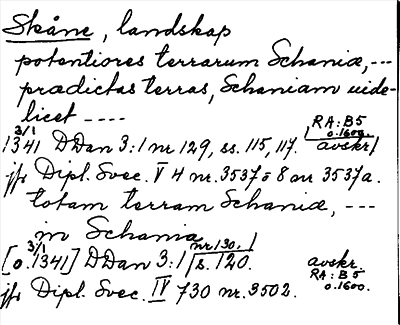 Skåne, landskap
potentiores terrarum Schaniæ, ---
prædictas terras, Schaniam vide-
licet ----
RA: B5
o. 1600.
3/1
1341 DDan 3:1 nr 129, ss. 115, 117. avskr.
jfr Dipl. Svec. V 4 nr. 3537 o 8 3537a.
totam terram Schaniæ, ---
in Schania
nr 130,
3/1
[o. 1341] DDan 3:1 s. 120. avskr.
RA: B5
jfr Dipl. Svec. IV 730 nr. 3502. o. 1600.